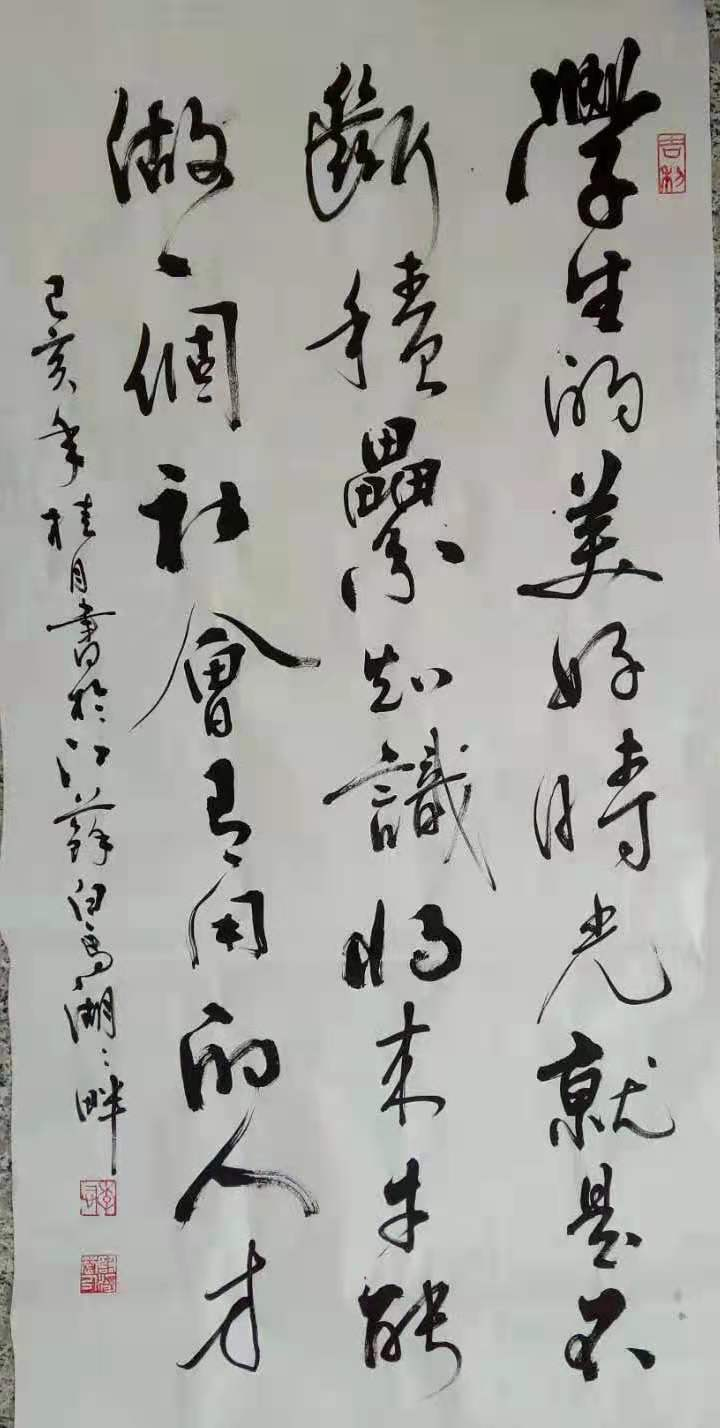 吉利
學生的美好時光就是不
斷積纍知識将来才能
做一個社會有用的人才
己亥年桂月書於江蘇白馬湖〻畔